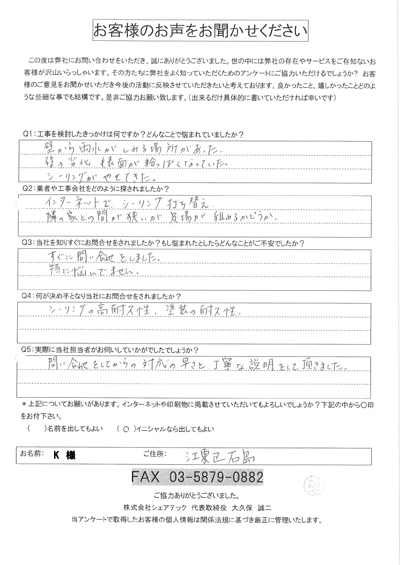 お客様のお声をお聞かせください
この度は弊社にお問い合わせをいただき、誠にありがとうございました。世の中には弊社の存在やサービスをご存知ない
お客様が沢山いらっしゃいます。その方たちに弊社をよく知っていただくためのアンケートにご協力いただけるでしょうか? お客
様のご意見をお聞かせいただき今後の活動に反映させていただきたいと考えております。良かったこと、嬉しかったことどのよ
うな些細な事でも結構です。是非ご協力お願い致します。(出来るだけ具体的に書いていただければ幸いです)
Q1:工事を検討したきっかけは何ですか?どんなことで悩まれていましたか?
壁から雨水がしみる場所があった。
壁の劣化 表面が粉っぽくなっていた。
シーリングがやせてきた。
Q2:業者や工事会社をどのように探されましたか?
インターネットで、シーリング打ち替え
隣の家との間が狭いが足場が組めるかどうか。
Q3:当社を知りすぐにお問合せをされましたか?もし悩まれたとしたらどんなことがご不安でしたか?
すぐに問い合せをしました。
特に悩んでません。
Q4:何が決め手となり当社にお問合せをされましたか?
シーリングの高耐久性、塗装の耐久性。
Q5:実際に当社担当者がお伺いしていかがでしたでしょうか?
問い合せをしてからの対応の早さと丁寧な説明をして頂きました。
*上記についてお願いがあります。インターネットや印刷物に掲載させていただいてもよろしいでしょうか?下記の中から〇印
をお付下さい。
( )名前を出してもよい (○)イニシャルなら出してもよい
お名前: K 様 ご住所: 江東区石島
FAX 03-5879-0882
ご協力ありがとうございました。
株式会社シェアテック 代表取締役 大久保 誠二
当アンケートで取得したお客様の個人情報は関係法規に基づき厳正に管理いたします。